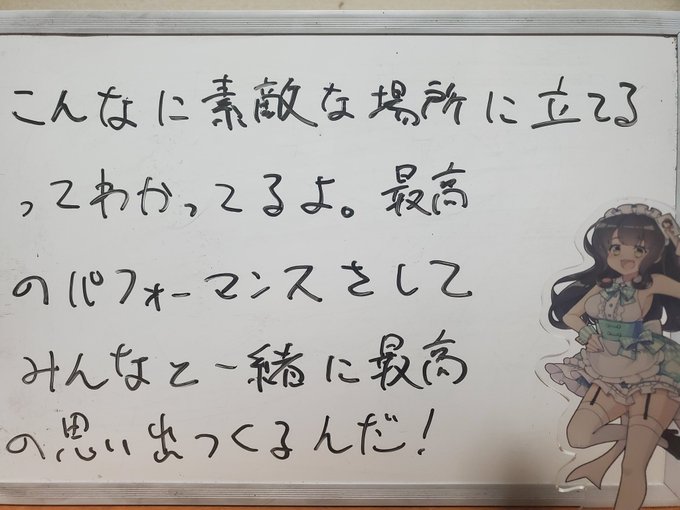 こんなに素敵な場所に立てる
ってわかってるよ。最高
のパフォーマンスをして
みんなと一緒に最高
の思い出つくるんだ!